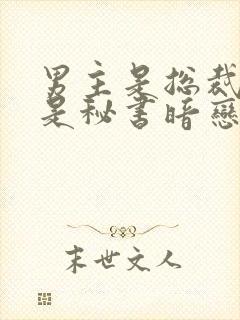 男主是总裁
是秘书暗戀
末世文人